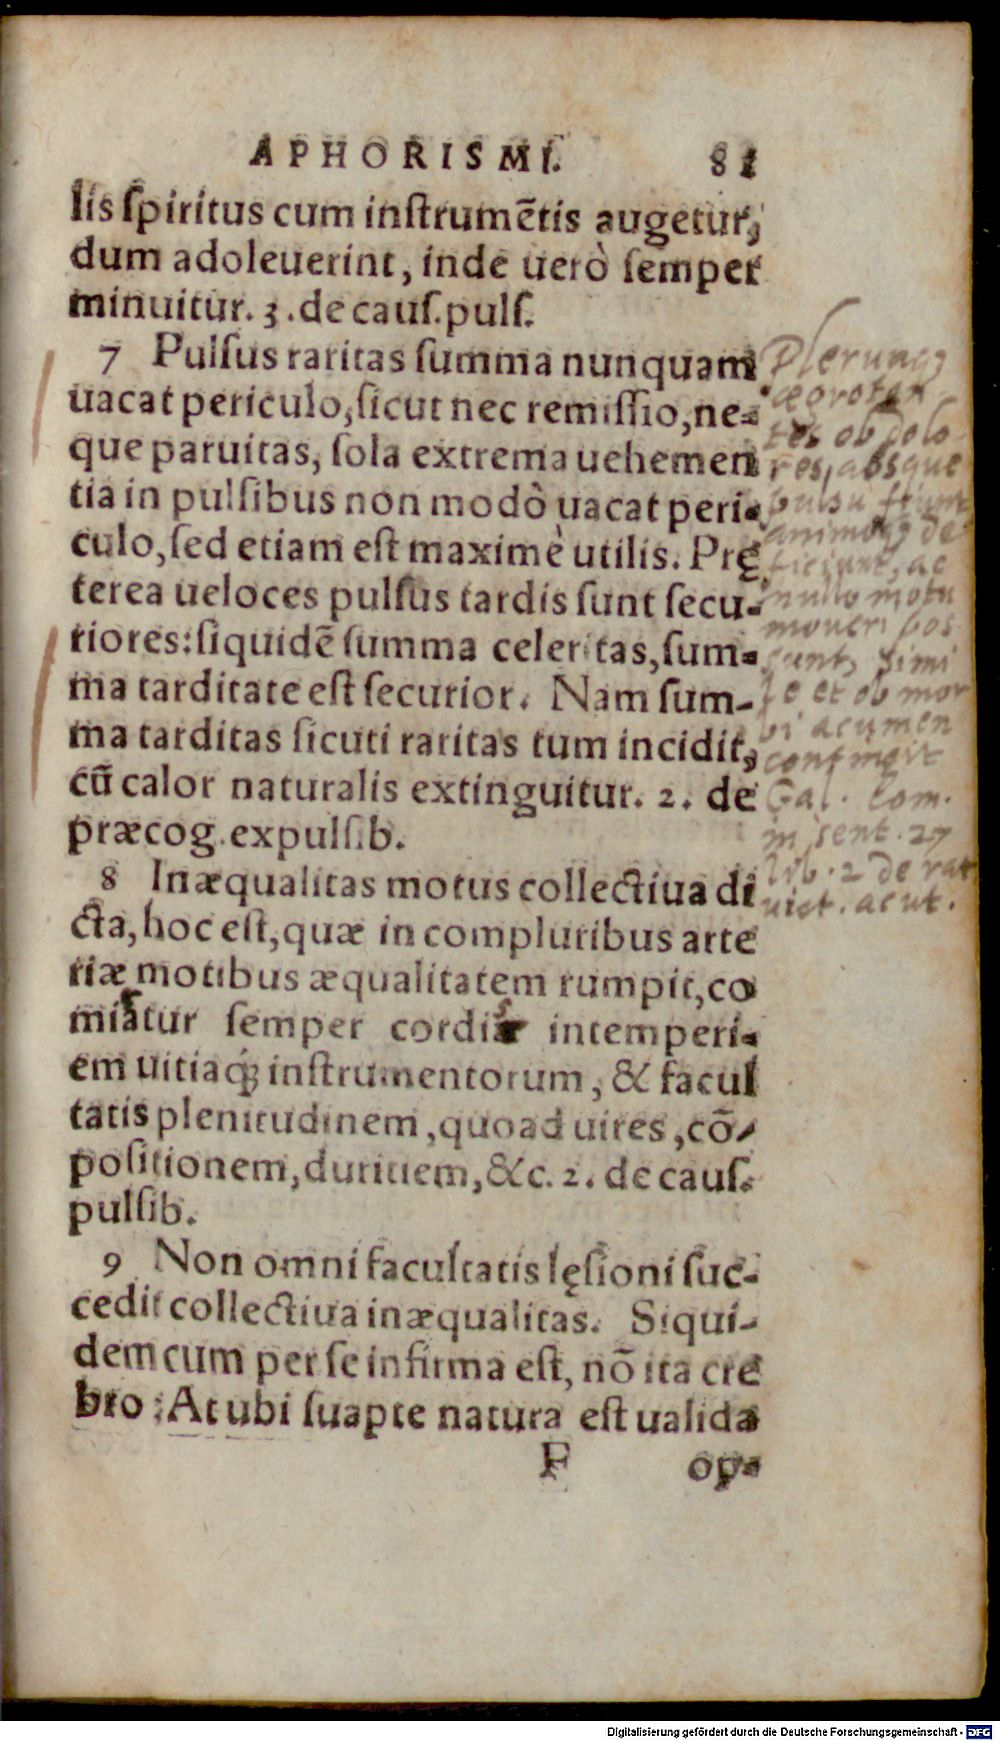 APHORISMI. 81
lis ſpiritus cum inſtrumẽtis augetur,
dum adoleuerint, inde uerò ſemper
minuitur. 3. de cauſ. pulſ.
7 Pulſus raritas ſumma nunquam
uacat periculo, ſicut nec remiſſio, ne-
que paruitas, ſola extrema uehemen
tia in pulſibus non modò uacat peri-
culo, ſed etiam eſt maximè utilis. Prę
terea ueloces pulſus tardis ſunt ſecu-
riores: ſiquidẽ ſumma celeritas, ſum-
ma tarditate eſt ſecurior. Nam ſum-
ma tarditas ſicuti raritas tum incidit,
cũ calor naturalis extinguitur. 2. de
præcog. expulſib.
8 Inæqualitas motus collectiua di
cta, hoc eſt, quæ in compluribus arte
riæ motibus æqualitatem rumpit, co
mitatur ſemper cordis intemperi-
em uitiaq́; inſtrumentorum, & facul
tatis plenitudinem, quoad uires, cõ-
poſitionem, duritiem, &c. 2. de cauſ.
pulſib.
9 Non omni facultatis lęſioni ſuc-
cedit collectiua inæqualitas. Siqui-
dem cum per ſe infirma eſt, nõ ita cre
bro: At ubi ſuapte natura eſt ualida
F op-
Plerunq;
ægrotan
tes ob dolo
res, absque
pulsu fiunt
animoq; de
ficiunt, ac
nullo motu
moueri pos
sunt, simi
le et ob mor
bi acumen
contingit
Gal. Com.
in sent. 27
lib. 2 de rat
uict. acut.
Digitalisierung gefördert durch die Deutsche Forschungsgemeinschaft - DFG